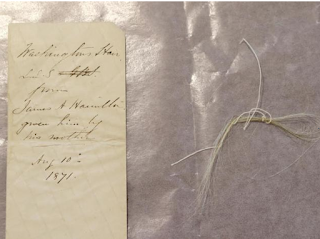 Washington's Hair
L.S.S.
from
James A Hamilton
given him by
his mother
Aug 10th
1871